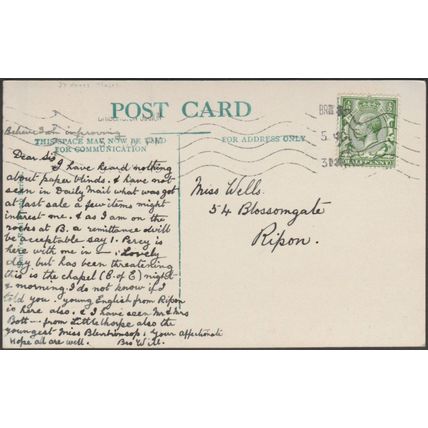 POST CARD
Believe I am improving
THIS SPACE MAY NOW BE USED
FOR COMMUNICATION
FOR ADDRESS ONLY
Dear Sis
I have heard nothing
about paper blinds. & have not
seen in Daily Mail what was got
at last sale a few items might
interest one. & as I am on the
rocks at B. a remittance will
be acceptable say 1. Percy is
here with me in Lovely
day but has been threatening
this is the chapel (C. of E) night
& morning. I do not know if I
told you. young English from Ripon
is here also. & I have seen Mr & Mrs
Bott from Littlethorpe also the
youngest Miss
Your affectionate
Hope all are well. Bro Will.
Miss Wells.
54 Blossomgate
Ripon.
HALFPENNY